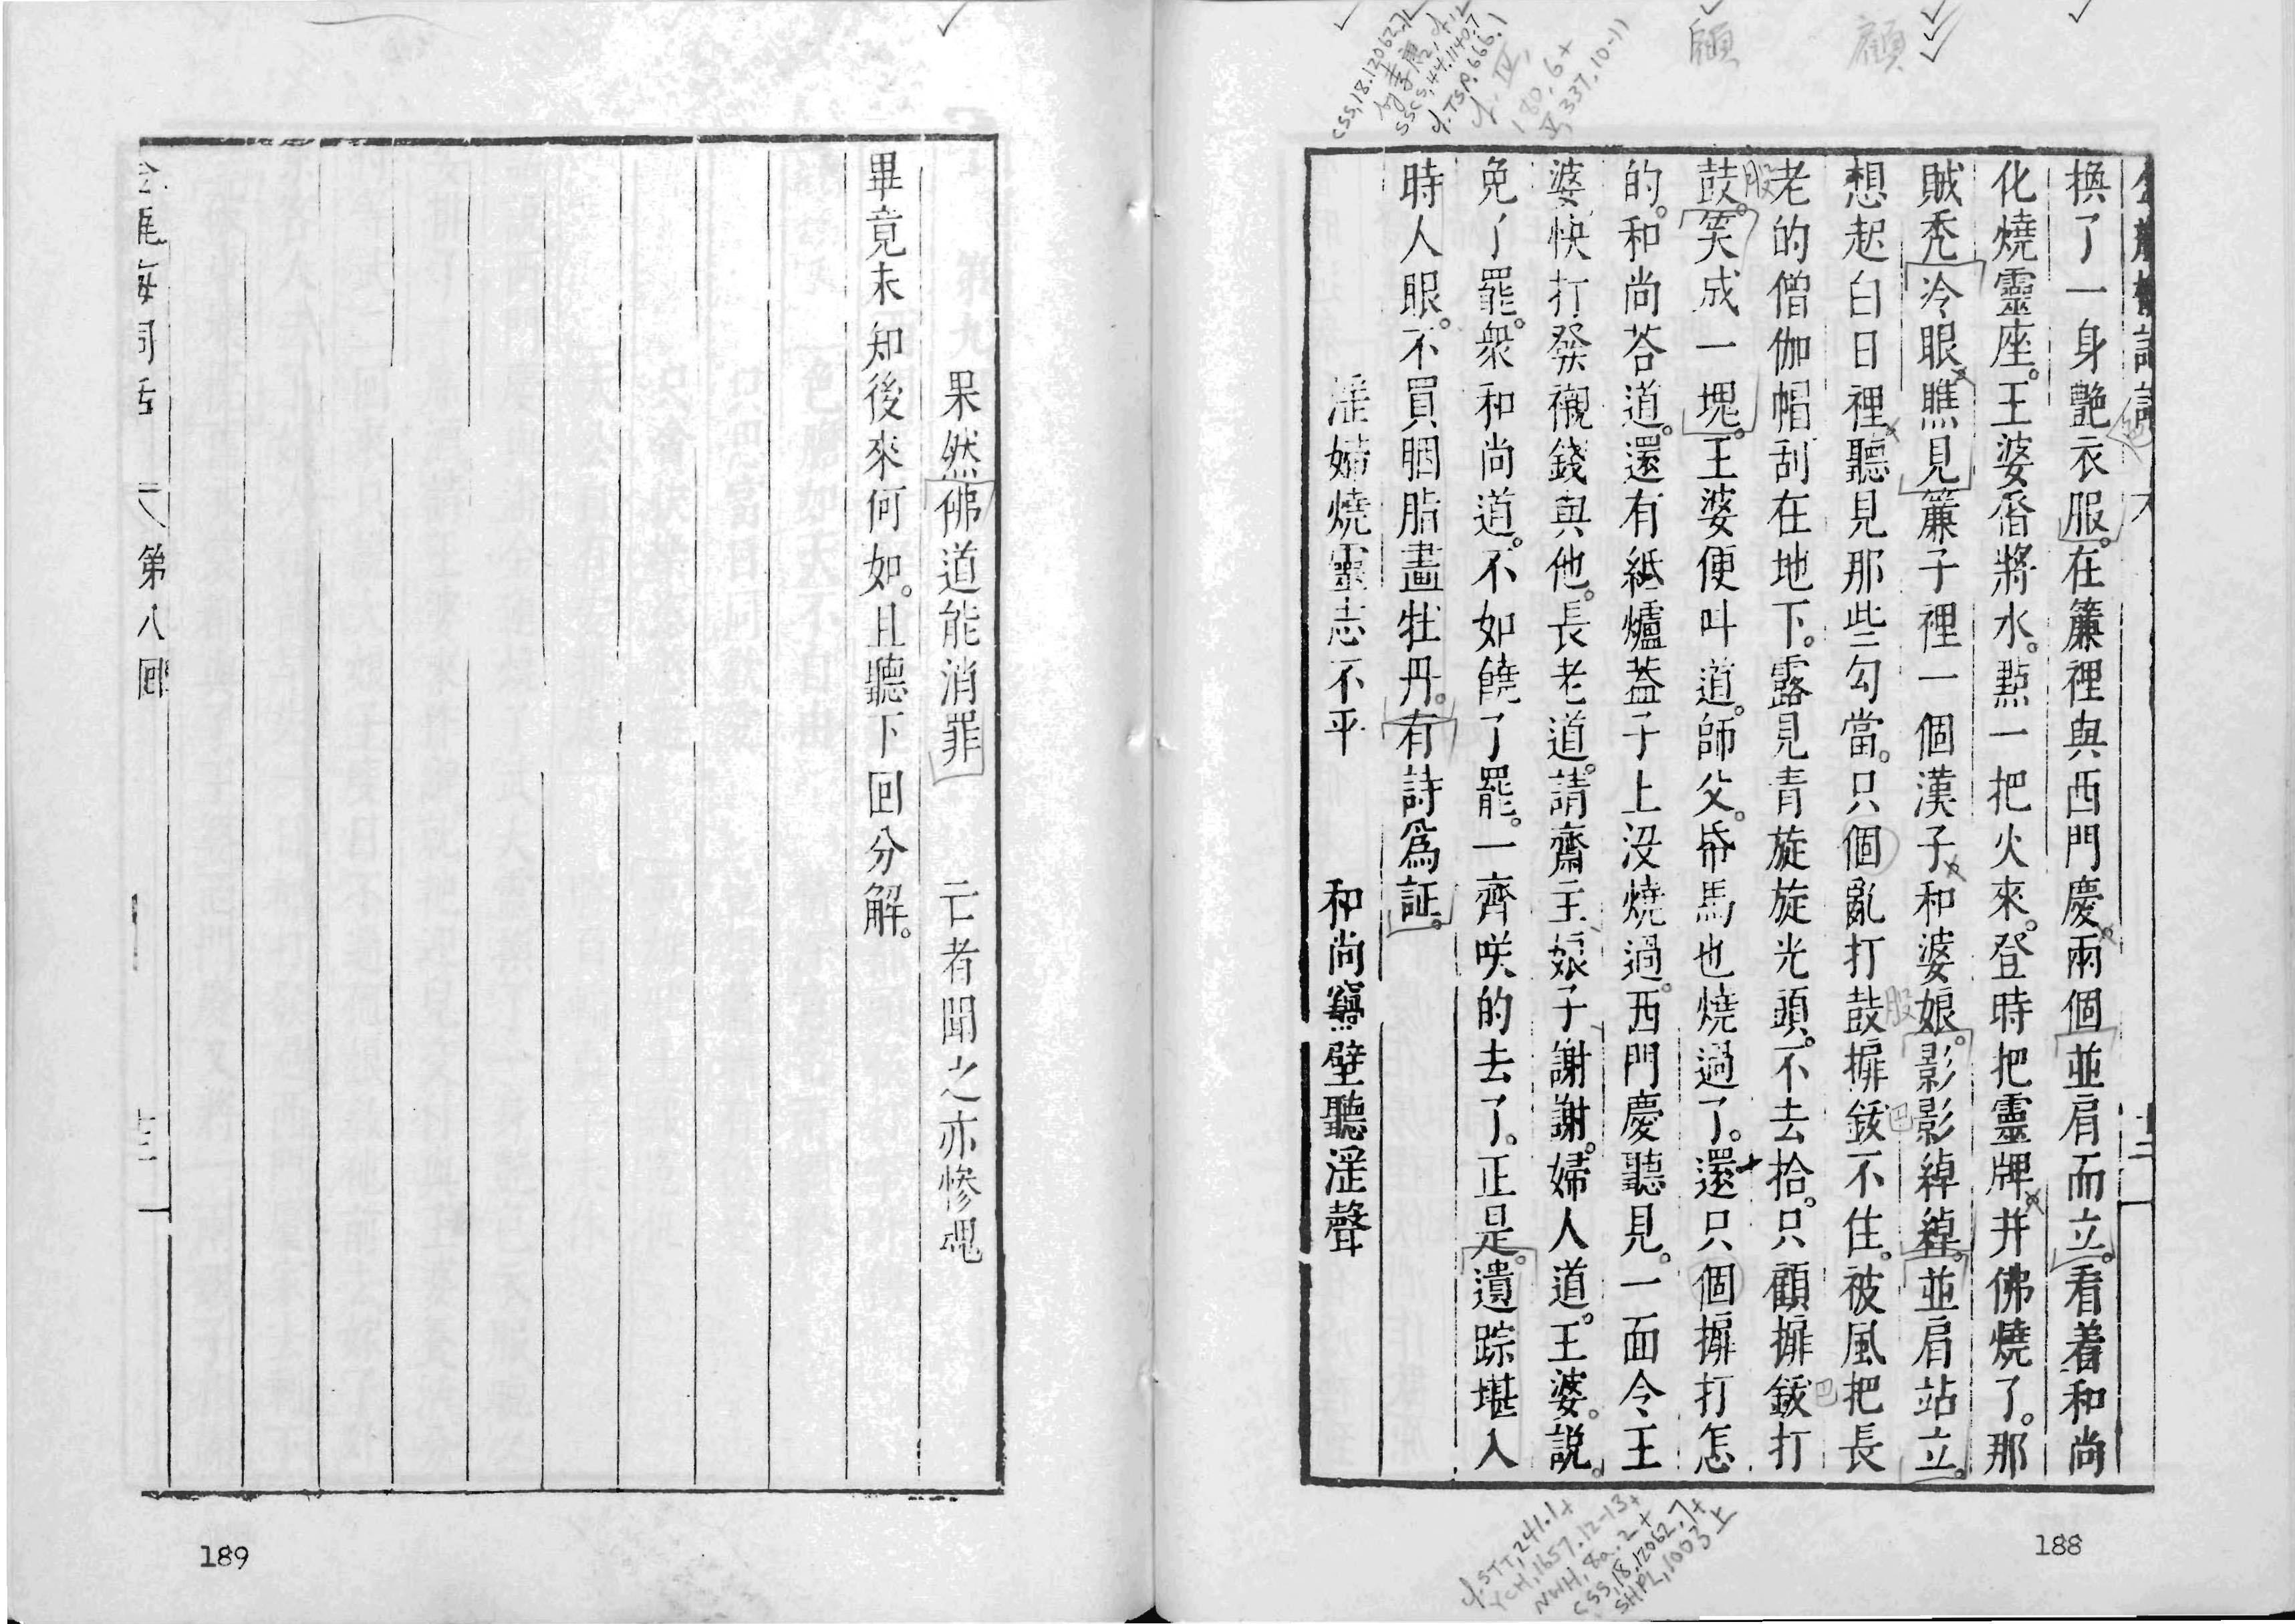 換了一身艷衣服。在簾裡與西門慶兩個並肩而立。看着和尚
化燒靈座。王婆舀將水。點一把火來。登時把靈牌并佛燒了。那
賊禿冷眼瞧見簾子裡一個漢子和婆娘。影影綽綽。並肩站立。
想起白日裡聽見那些勾當。只個亂打鼓搧鈸不住。被風把長
老的僧伽帽刮在地下。露見青旋旋光頭。不去拾。只顧搧鈸打
鼓。笑成一塊。王婆便叫道。師父。帋馬也燒過了。還只個搧打怎
的。和尚荅道。還有紙爐葢子上沒燒過。西門慶聽見。一面令王
婆快打發襯錢與他。長老道。請齋主娘子謝謝。婦人道。王婆。說
免了罷。衆和尚道。不如饒了罷。一齊咲的去了。正是。遺踪堪入
時人眼。不買胭脂畫牡丹。有詩爲証。
淫婦燒靈志不平 和尚竊壁聽淫聲
188
果然佛道能消罪 亡者聞之亦慘魂
畢竟未知後來何如。且聽下回分解。
第八回
189
顧
顧
股
股
巴
巴
CSS,18.12062.7+
SHPL,1003上